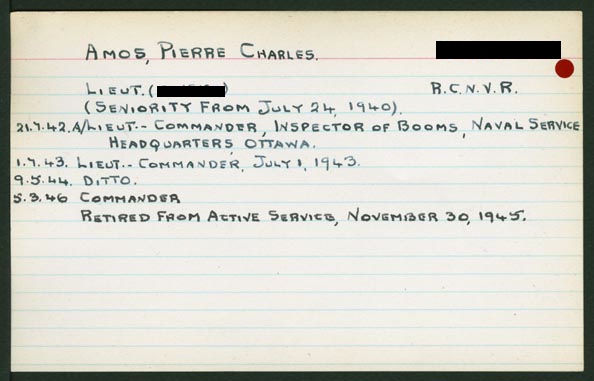 AMOS, PIERRE CHARLES.
LIEUT. ( ) R.C.N.V.R.
(SENIORITY FROM JULY 24, 1940).
21.7.42. A/LIEUT.-COMMANDER, INSPECTOR OF BOOMS, NAVAL SERVICE
HEADQUARTERS, OTTAWA.
1.7.43. LIEUT.-COMMANDER, JULY 1, 1943.
9.5.44. DITTO.
5.3.46 COMMANDER
RETIRED FROM ACTIVE SERVICE, NOVEMBER 30, 1945.